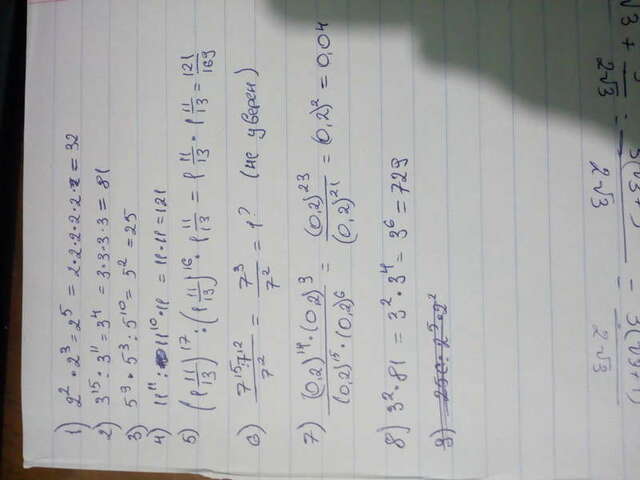 1) 2² • 2³ = 2⁵ = 2 • 2 • 2 • 2 • 2 = 32
2) 3¹⁵ : 3¹¹ = 3⁴ = 3 • 3 • 3 • 3 = 81
3) 5⁹ • 5³ : 5¹⁰ = 5² = 25
4) 11¹¹ : 11¹⁰ • 11 = 11 • 11 = 121
5) (1 11/13)¹⁷ : (1 11/13)¹⁶ • 1 11/13 = 1 11/13 • 1 11/13 = 121/169
6) = 7³/7² = 1? (не уверен)
7) (0,2)¹⁴ • (0,2)³ / (0,2)¹⁵ • (0,2)⁶ = (0,2)²³ / (0,2)²¹ = (0,2)² = 0,04
8) 3² • 81 = 3² • 3⁴ = 3⁶ = 729
9)